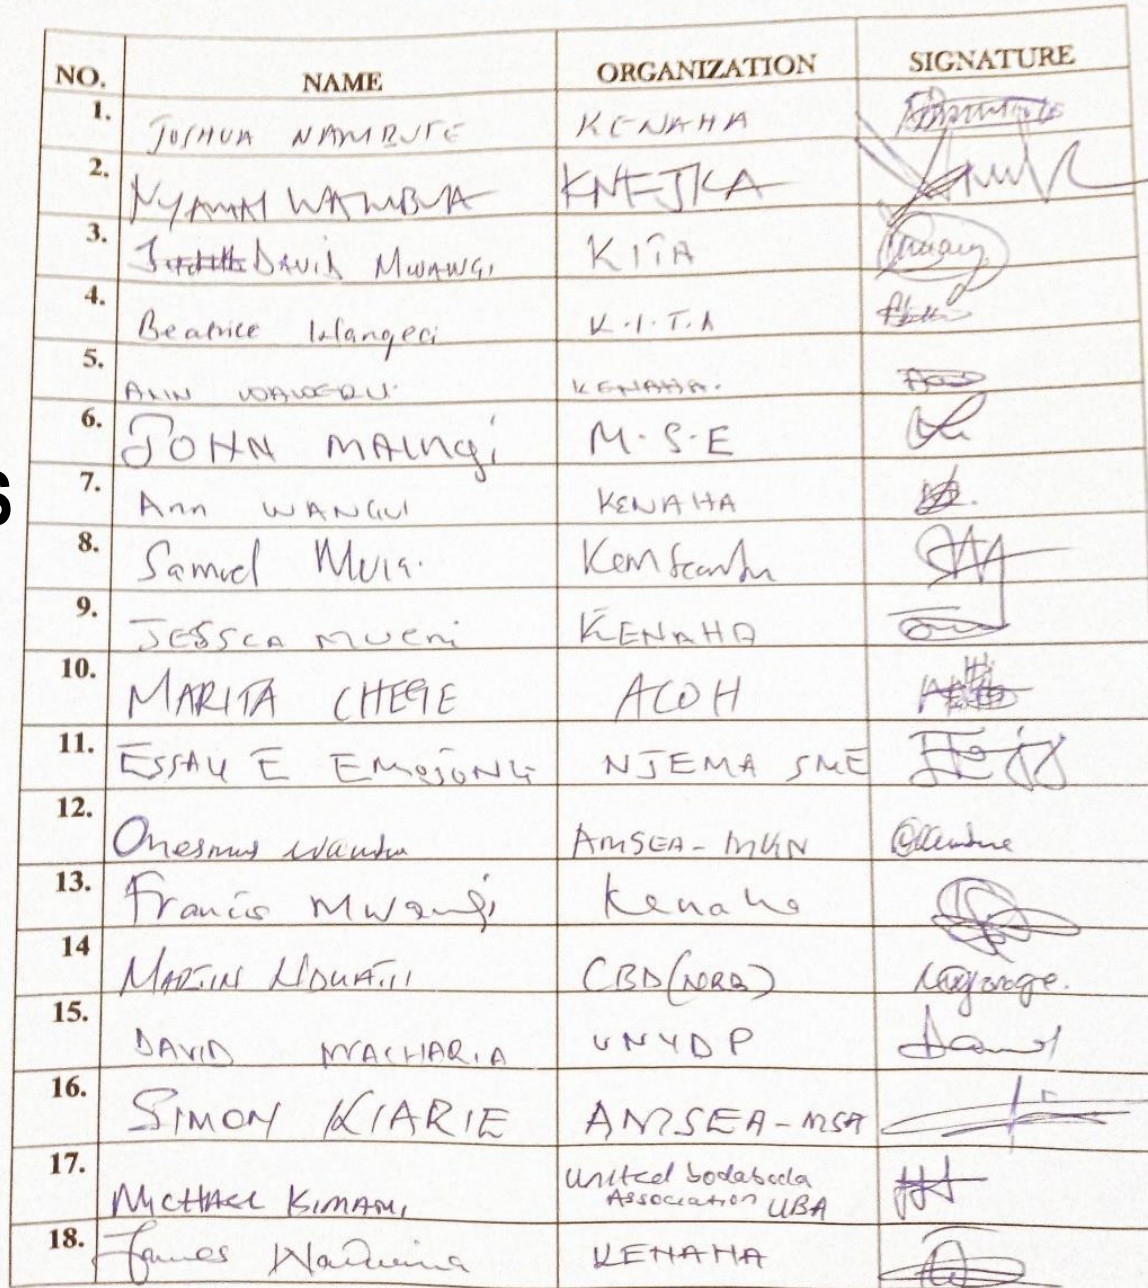 NO. NAME ORGANIZATION SIGNATURE
1. JOSHUA NAMBUTE KENAHA
2. NYAMAI WAMBUA KNFJKA
3. DAVID MWANGI KITA
4. Beatrice Wangeci K.I.T.A
5. ANN WAWERU. KENAHA.
6. JOHN MAINGI M.S.E
7. Ann WANGUI KENAHA
8. Samuel
9. JESSCA MUENI KENAHA
10. MARITA CHEGE ACOH
11. ESSAU E EMOJONG NJEMA SME
12. Onesmus AMSEA-MKN
13. Francis Mwangi Kenaha
14 MARTIN CBD
15. DAVID MACHARIA UNYDP
16. SIMON KIARIE AMSEA-MSA
17. MICHAEL KIMANI United bodaboda
Association UBA
18. James KENAHA
S